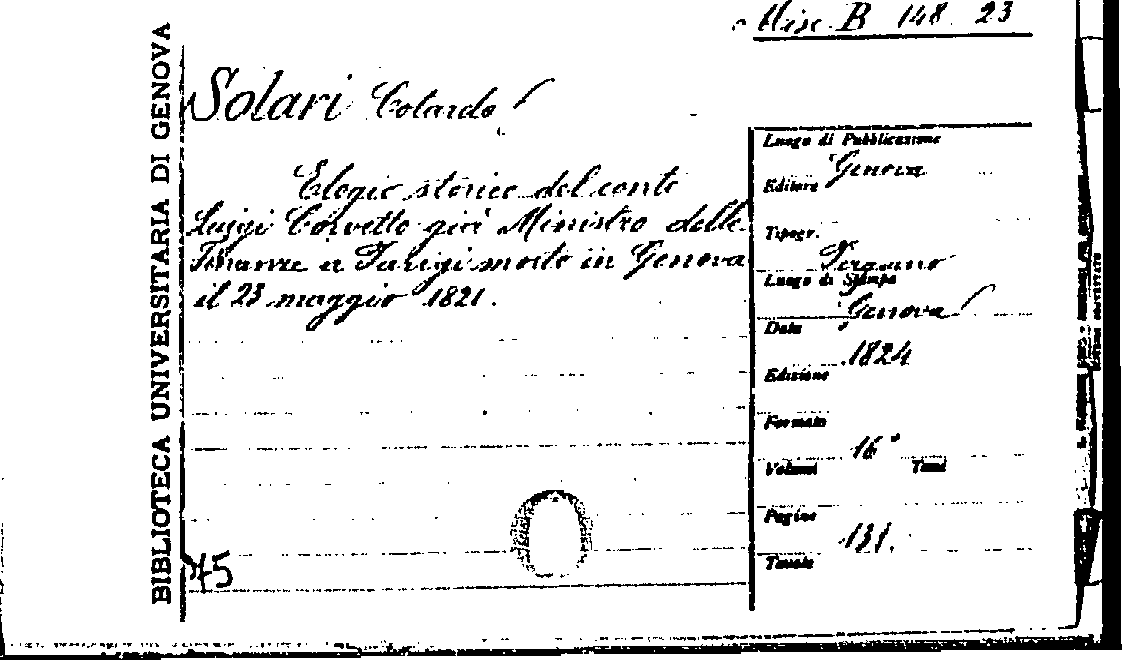 Misc. B 148 23
BIBLIOTECA UNIVERSITARIA DI GENOVA
Solari Colardo
Elogio storico del conte
Luigi Corvetto già Ministro delle
Finanze a Parigi morto in Genova
il 23 maggio 1821.
Luogo di Pubblicazione
Genova
Editore
Tipogr.
Luogo di Stampa
Genova
Data
1824
Edizione
Formato
16°
Volumi Tomi
Pagine
131.
Tavole
75